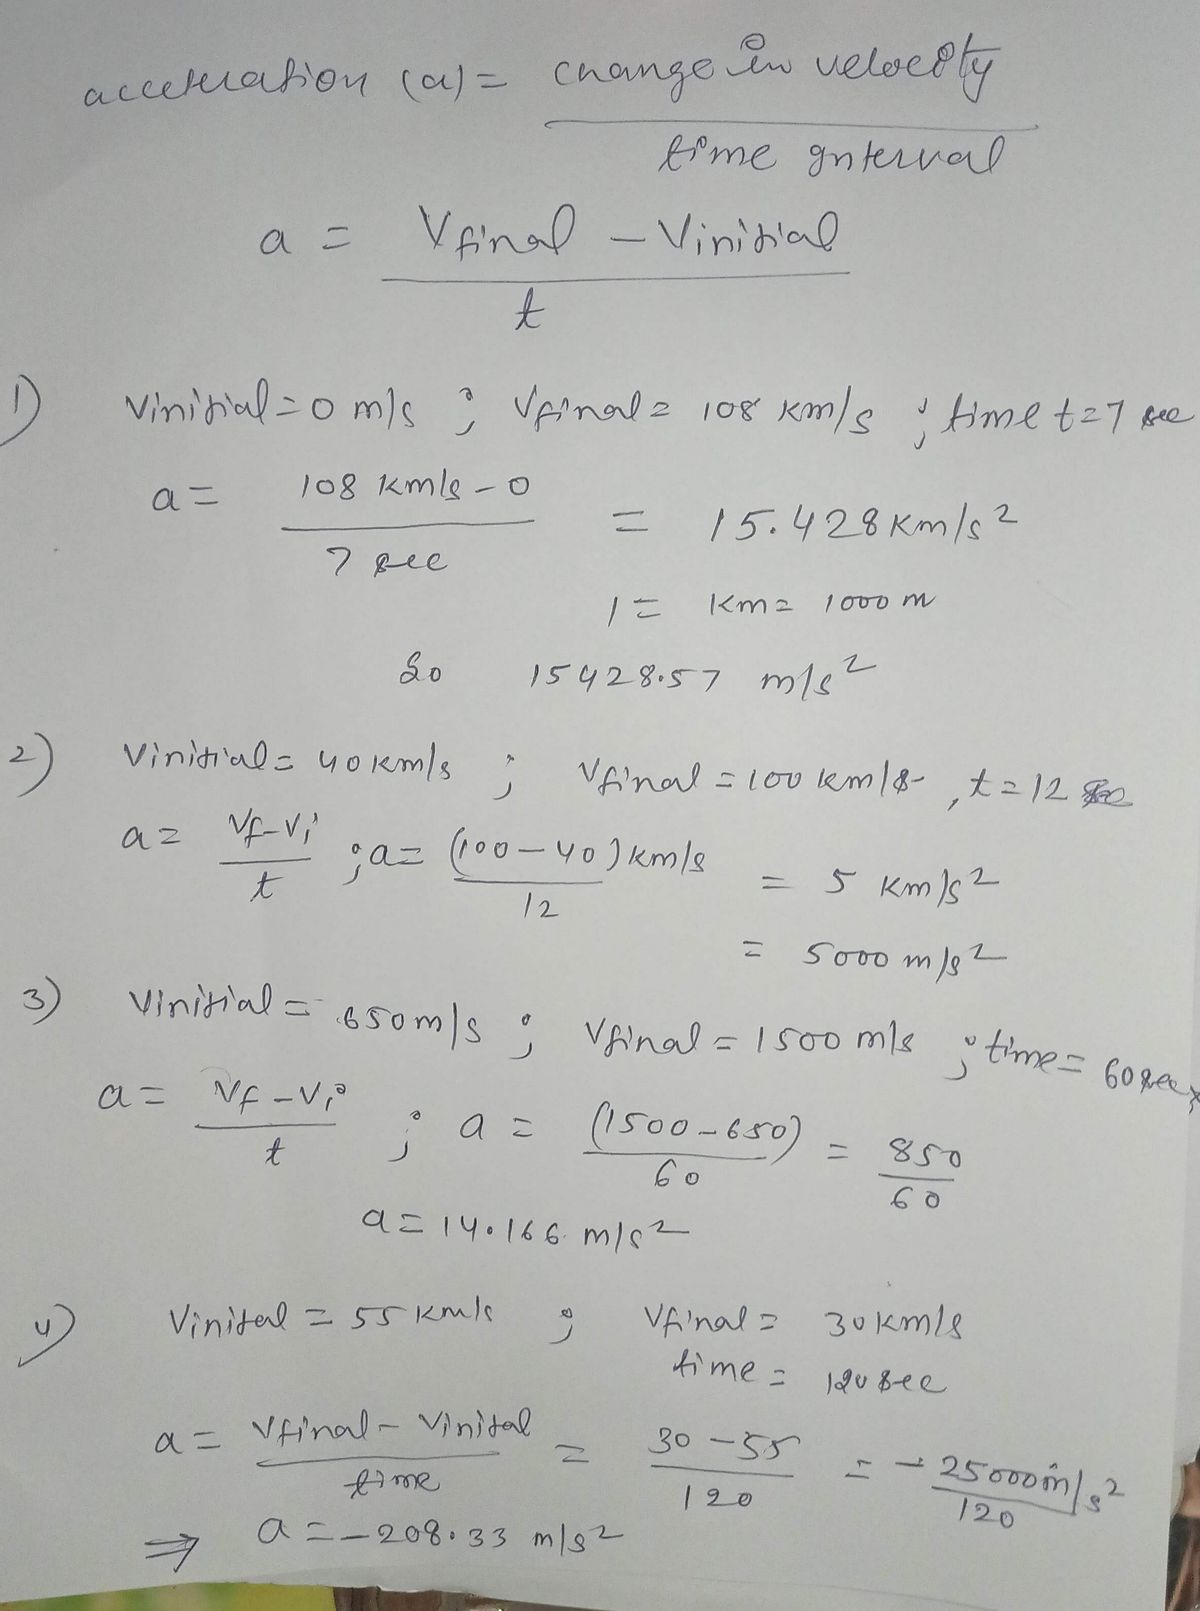 acceleration (a) = change in velocity
time interval
a = Vfinal - Vinitial
t
1) Vinitial = 0 m/s ; Vfinal = 108 km/s ; time t = 7 sec
a = 108 km/s - 0
7 sec
= 15.428 km/s²
1 = km = 1000 m
So 15428.57 m/s²
2) Vinitial = 40 km/s ; Vfinal = 100 km/s , t = 12 sec
a = Vf - Vi
t
; a = (100 - 40) km/s
12
= 5 km/s²
= 5000 m/s²
3) Vinitial = 650 m/s ; Vfinal = 1500 m/s ; time = 60 sec
a = Vf - Vi
t
; a = (1500 - 650)
60
= 850
60
a = 14.166 m/s²
4) Vinital = 55 km/s ; Vfinal = 30 km/s
time = 120 sec
a = Vfinal - Vinital
time
= 30 - 55
120
= - 25000 m/s²
120
⇒ a = -208.33 m/s²